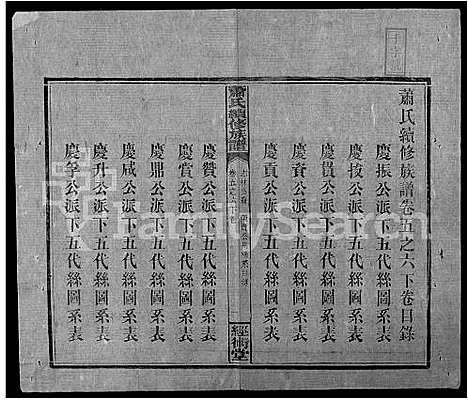 蕭氏續修族譜卷五之六下卷目錄
慶振公派下五代絲圖系表
慶按公派下五代絲圖系表
慶貴公派下五代絲圖系表
慶資公派下五代絲圖系表
慶貢公派下五代絲圖系表
蕭氏續修族譜
經術堂
慶贊公派下五代絲圖系表
慶賞公派下五代絲圖系表
慶鼎公派下五代絲圖系表
慶咸公派下五代絲圖系表
慶升公派下五代絲圖系表
慶箏公派下五代絲圖系表
FamilySearch